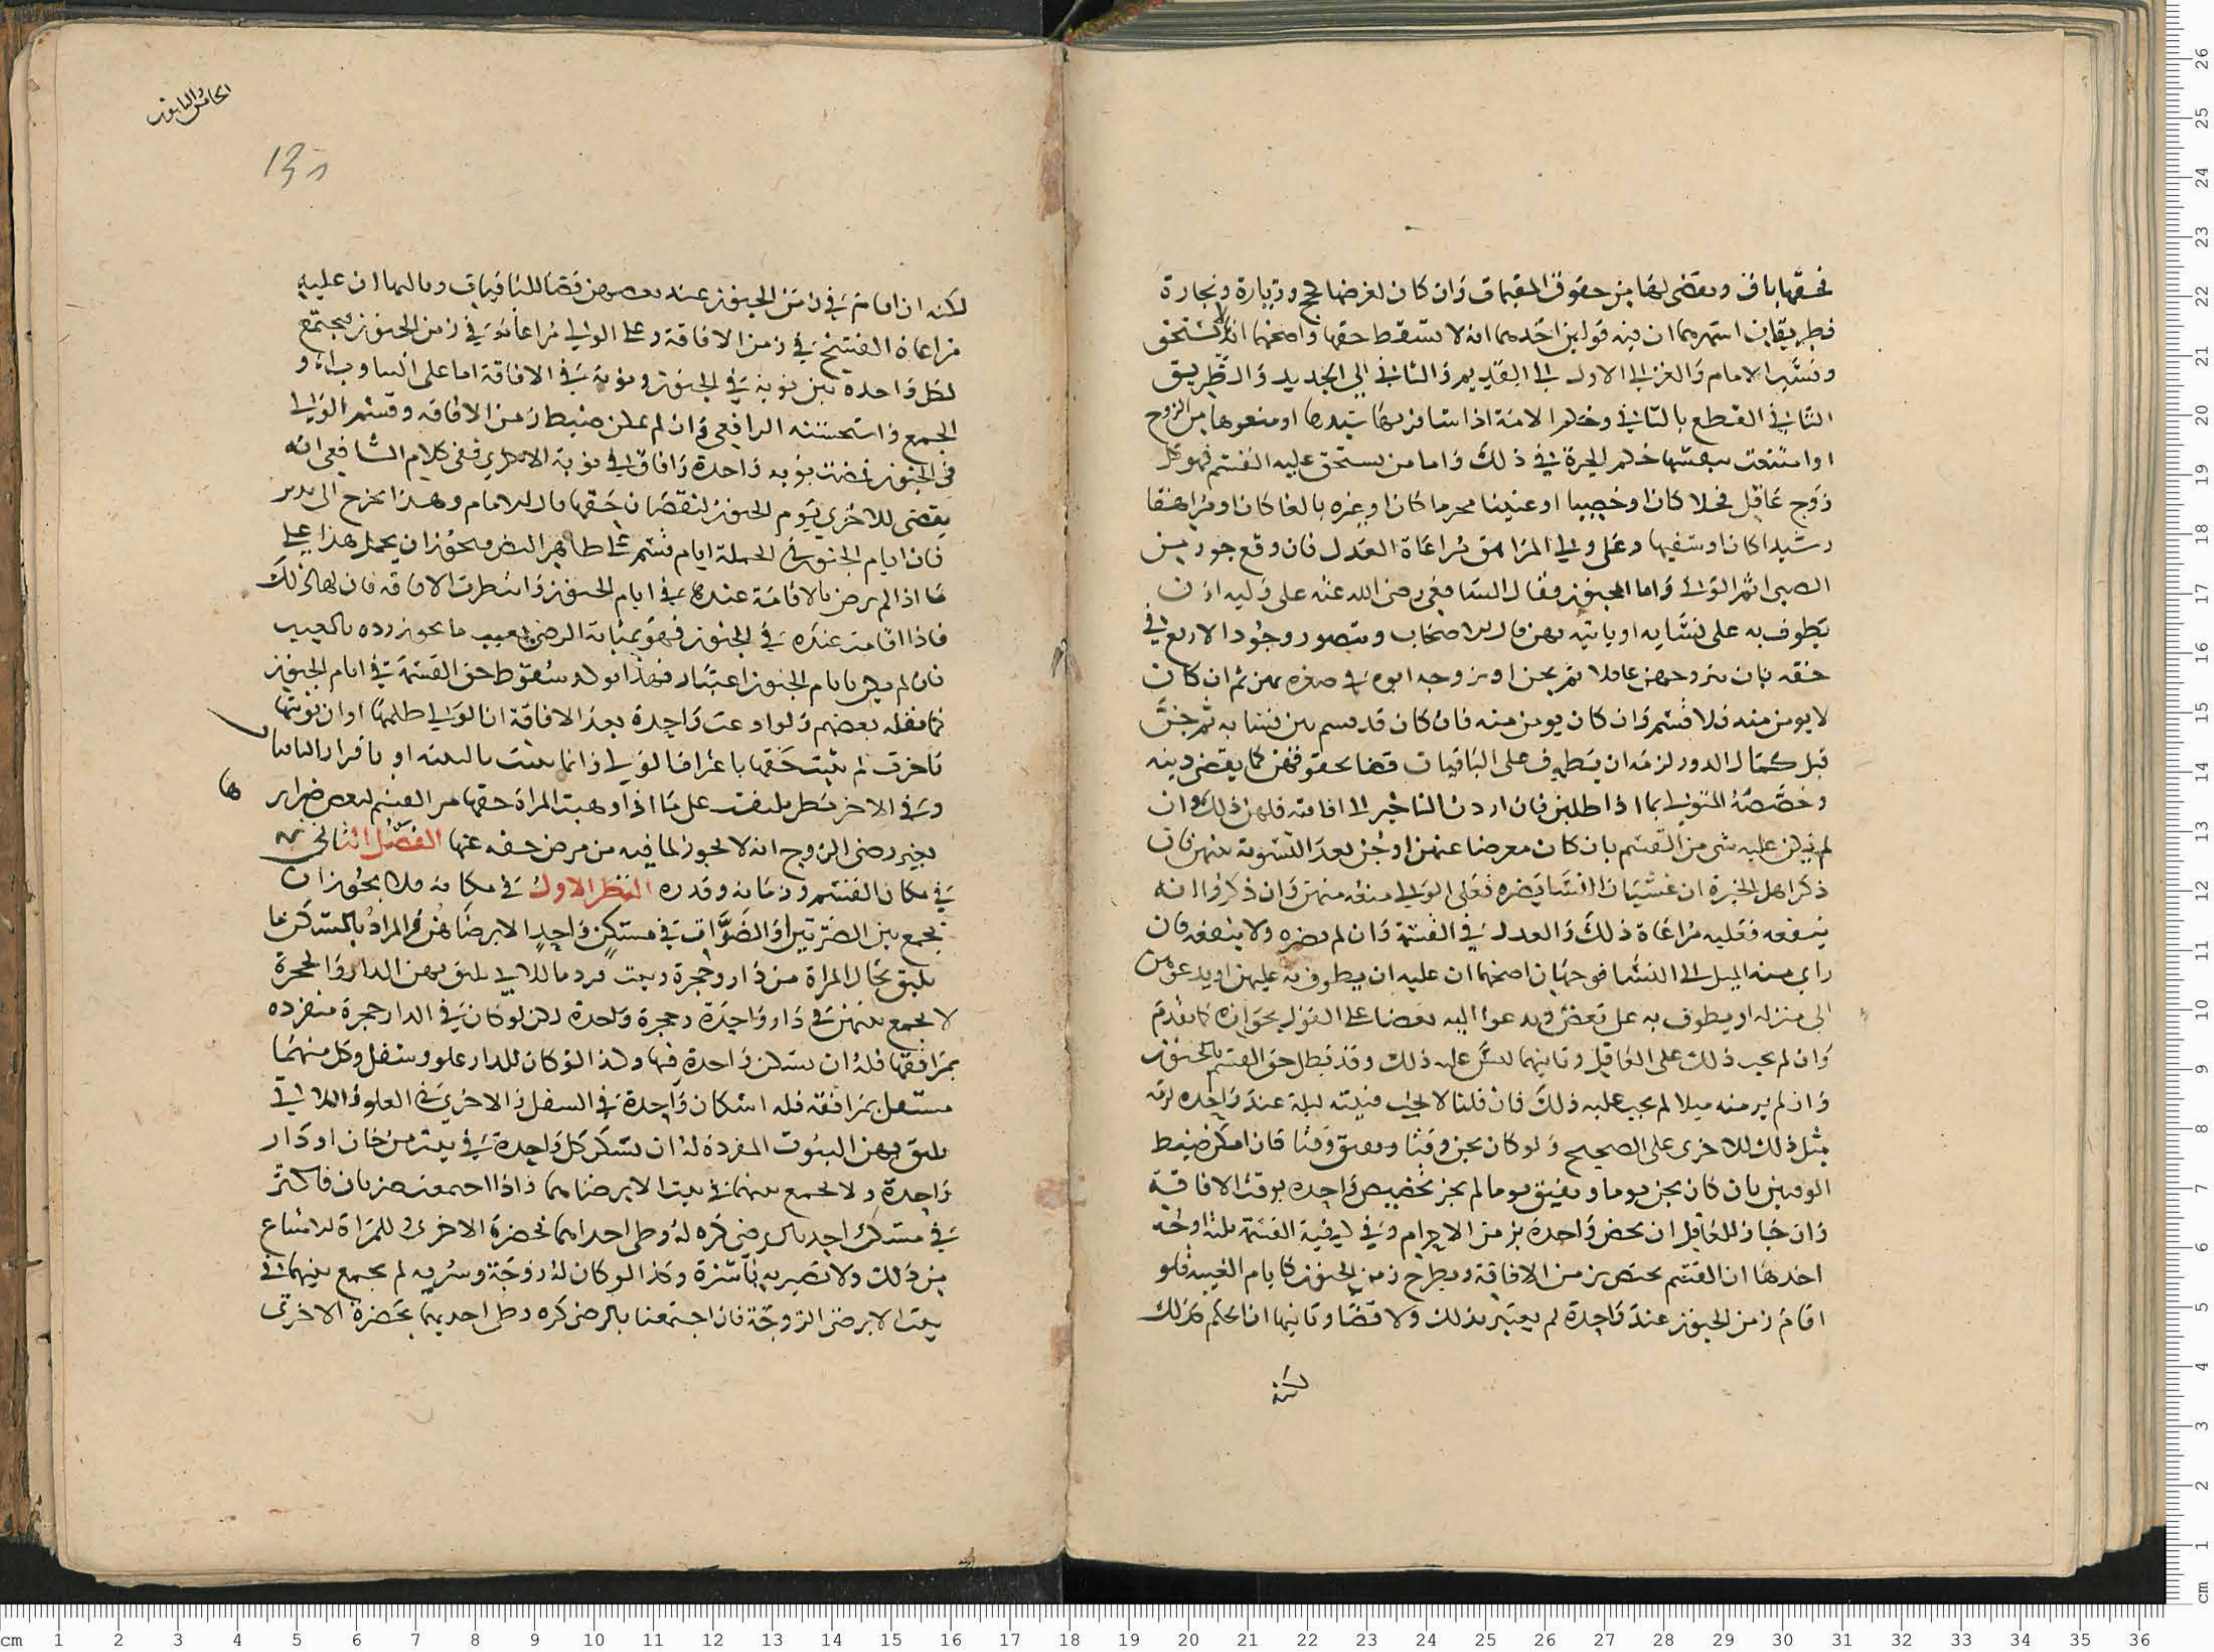 فحقها باق ويقضى لها من حقوق المقيمات وان كان لغرضها كحج وزيارة وتجارة
فطريقان اشهرهما ان فيه قولين احدهما انه لا يسقط حقها واصحهما انها لا تستحق
ونسب الامام والغزالي الاول الى القديم والثاني الى الجديد والطريق
الثاني القطع بالثاني وحكم الامة اذا سافر بها سيدها او منعوها من الزوج
او امتنعت بنفسها حكم الحرة في ذلك واما من يستحق عليه القسم فهو كل
زوج عاقل فحلا كان او خصيا او عنينا محرما كان او غيره بالغا كان او مراهقا
رشيدا كان او سفيها وعلى ولي المراهق مراعاة العدل فان وقع جور من
الصبي اثم الولي واما المجنون فقال الشافعي رضي الله عنه على وليه ان
يطوف به على نسائه او ياتيه بهن قال الاصحاب ويتصور وجود الاربع في
حقه بان يتزوجهن عاقلا ثم يجن او يزوجه ابوه في صغره بهن ثم ان كان
لا يومن منه فلا قسم وان كان يومن منه فان كان قد قسم بين نسائه ثم جن
قبل كمال الدور لزمه ان يطوف على الباقيات قضا لحقوقهن كما يقضي دينه
وخصصه المتولي بما اذا طلبن فان اردن التاخير الى افاقته فلهن ذلك وان
لم يكن عليه شي من القسم بان كان معرضا عنهن او جن بعد التسوية بينهن فان
ذكر اهل الخبرة ان غشيان النسا يضره فعلى الولي منعه منهن وان ذكروا انه
ينفعه فعليه مراعاة ذلك والعدل في القسمة وان لم يضره ولا ينفعه فان
راى منه الميل الى النسا فوجهان اصحهما ان عليه ان يطوف به عليهن او يدعوهن
الى منزله او يطوف به على بعض ويدعو اليه بعضا على القول بجوازه كما تقدم
وان لم يجب ذلك على العاقل وثانيهما ليس عليه ذلك وقد بطل حق القسم بالجنون
وان لم ير منه ميلا لم يجب عليه ذلك فان قلنا لا يجب فبيته ليلة عند واحدة لزمه
مثل ذلك للاخرى على الصحيح ولو كان يجن وقتا ويفيق وقتا فان امكن ضبط
الوقتين بان كان يجن يوما ويفيق يوما لم يجز تخصيص واحدة بوقت الافاقة
وان جاز للعاقل ان يخص واحدة بزمن الاحرام وفي كيفية القسمة ثلاثة اوجه
احدها ان القسم يختص بزمن الافاقة ويطرح زمن الجنون كايام الغيبة فلو
اقام زمن الجنون عند واحدة لم يعتبر بذلك ولا قضا وثانيها ان الحكم كذلك
لكنه
الخامس والتاسع
لكنه ان اقام في زمن الجنون عند بعضهن قضا للباقيات وثالثها ان عليه
مراعاة القسم في زمن الافاقة وعلى الولي مراعاته في زمن الجنون فيجتمع
لكل واحدة بين نوبة في الجنون ونوبة في الافاقة
الجمع واستحسنه الرافعي وان لم يمكن ضبط زمن الافاقة وقسم الولي
في الجنون فمضت نوبة واحدة وافاق في نوبة الاخرى ففي كلام الشافعي انه
يقضي للاخرى يوم الجنون لنقصان حقها قال الامام وهذا يخرج
فان ايام الجنون في الجملة ايام قسم على ظاهر النص ويجوز ان يحمل هذا على
ما اذا لم يرض بالاقامة عندها في ايام الجنون وانتظرت الافاقة فان لها ذلك
فاذا اقامت عنده في الجنون فهو بمثابة الرضى بعيب ما يجوز رده بالعيب
فان لم يكن بايام الجنون اعتبار فهذا يولد سقوط حق القسمة في ايام الجنون
كما نقله بعضهم ولو ادعت واحدة بعد الافاقة ان الولي ظلمها او ان نوبتها
تاخرت لم يثبت حقها باعتراف الولي وانما يثبت بالبينة او باقرار الباقيات
وفي الاخر نظر يلتفت على ما اذا وهبت المراة حقها من القسم لبعض ضراير
بغير رضى الزوج انه لا يجوز لما فيه من مرض حقه عنها الفصل الثاني
في مكان القسم وزمانه وقدره النظر الاول في مكانه ولا يجوز ان
يجمع بين الضرتين او الضرات في مسكن واحد الا برضاهن والمراد بالمسكن ما
يليق بحال المراة من دار وحجرة وبيت فرد فاللاتي يليق بهن الدار والحجرة
لا يجمع بينهن في دار واحدة وحجرة واحدة لكن لو كان في الدار حجرة منفردة
بمرافقها فله ان يسكن واحدة فيها وكذا لو كان للدار علو وسفل وكل منهما
مستقل بمرافقه فله اسكان واحدة في السفل والاخرى في العلو واللاتي
يليق بهن البيوت المفردة له ان يسكن كل واحدة في بيت من خان او دار
واحدة ولا يجمع بينهما في بيت الا برضاهما واذا اجتمعت ضرتان فاكثر
في مسكن واحد بالرضى كره له وطى احداهما بحضرة الاخرى وللمراة الامتناع
من ذلك ولا تصير به ناشزة وكذا لو كان له زوجة وسرية لم يجمع بينهما في
بيت الا برضى الزوجة فان اجتمعتا بالرضى كره وطى احديهما بحضرة الاخرى